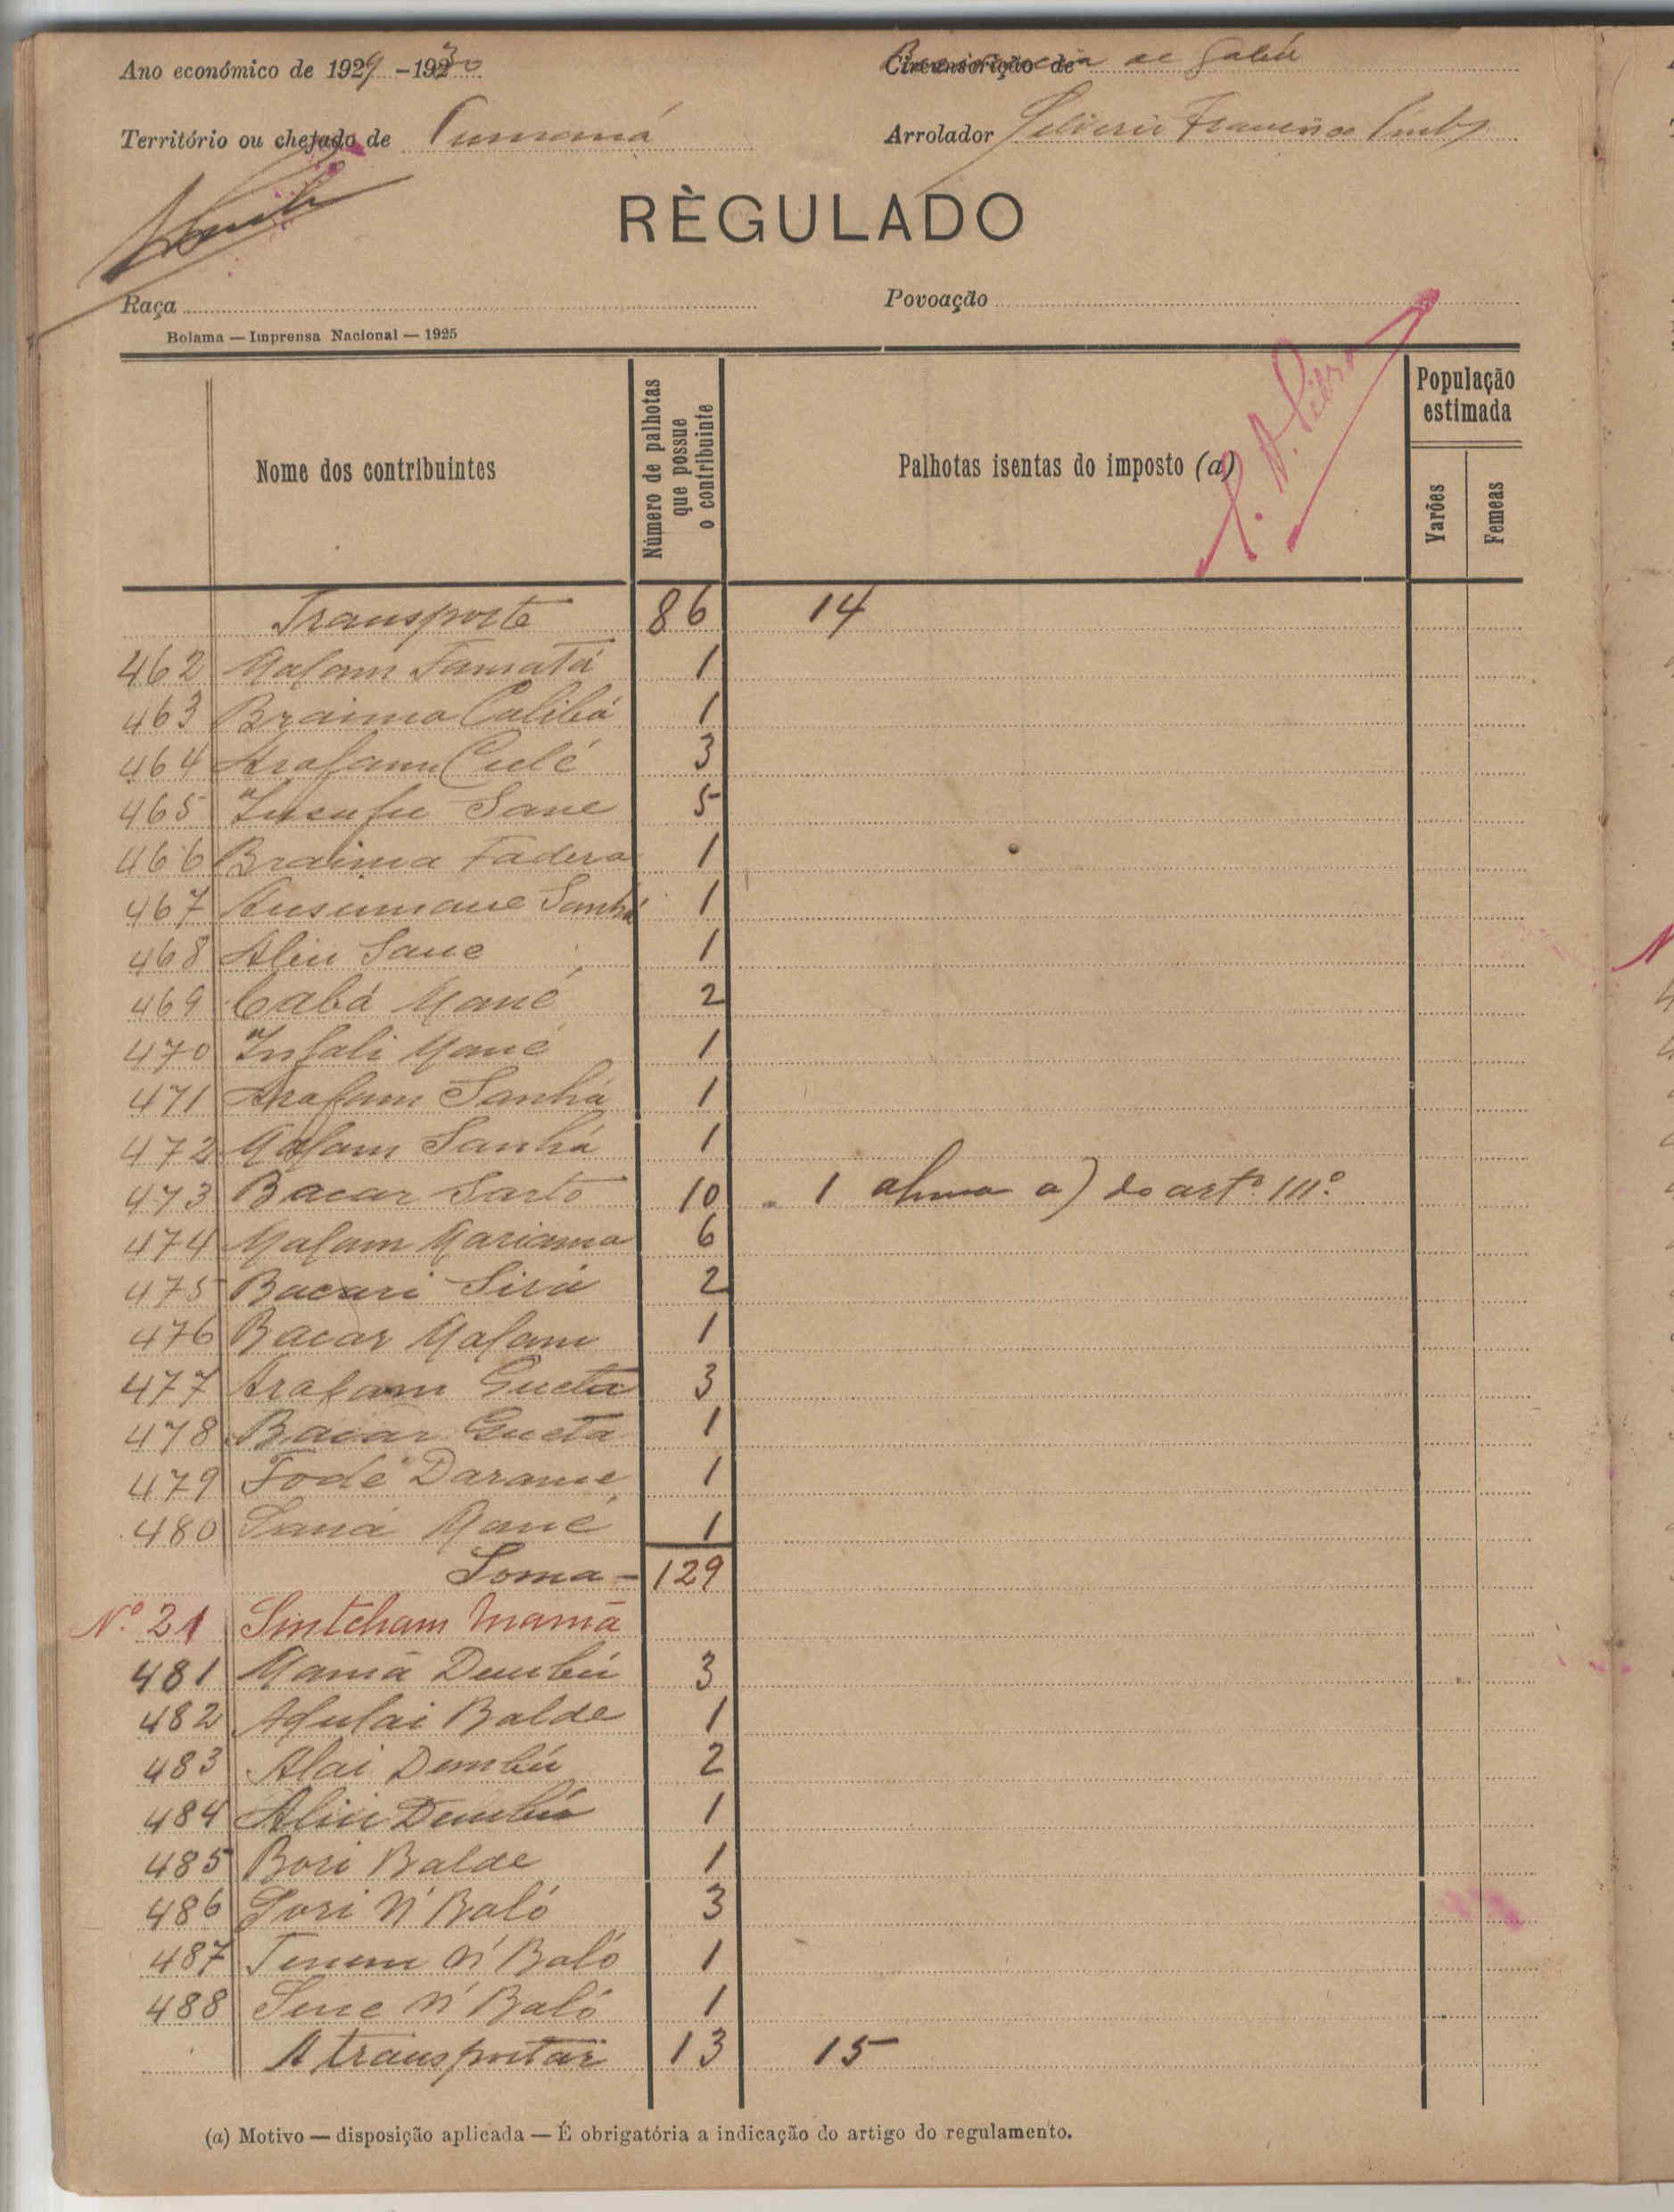 Ano económico de 1929-1930
Circunscrição de de Gabú
Território ou chefado de Cumaná
Arrolador
RÈGULADO
Raça
Povoação
Bolama — Imprensa Nacional — 1925
Nome dos contribuintes
Número de palhotas que possue o contribuinte
Palhotas isentas do imposto (a)
População estimada
Varões
Femeas
Transporte 86 14
462 Malam Tamatá 1
463 Braima Calibá 1
464 Arafam Culé 3
465 Iusufu Sane 5
466 Braima Fadera 1
467 Ansumane Sanhá 1
468 Aliu Sane 1
469 Cabá Mané 2
470 Infali Mané 1
471 Arafam Sanhá 1
472 Malam Sanhá 1
473 Bacar Sarto 10 1 alinea a) do artº 111º
474 Malam Mariama 6
475 Bacari Sirá 2
476 Bacar Malam 1
477 Arafam Gueta 3
478 Bacar Gueta 1
479 Fodé Darame 1
480 Saná Mané 1
Soma - 129
Nº 21 Sintcham Mamã
481 Mamã Dembú 3
482 Adulai Balde 1
483 Alai Dembú 2
484 Aliu Dembú 1
485 Bori Balde 1
486 Sori N'Baló 3
487 Tenem N'Baló 1
488 Sene N'Baló 1
A transportar 13 15
(a) Motivo — disposição aplicada — É obrigatória a indicação do artigo do regulamento.